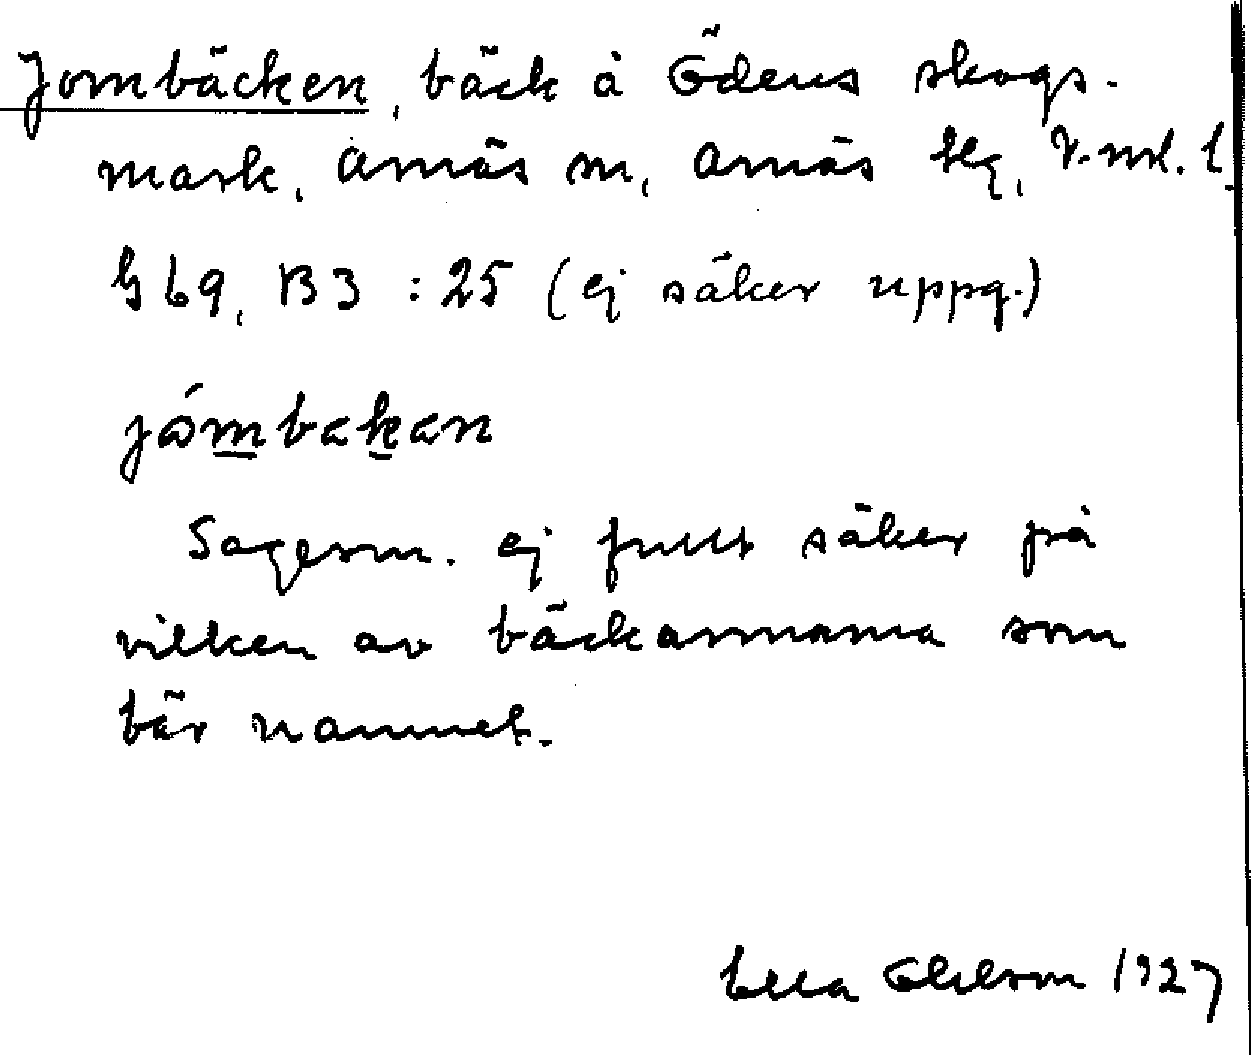 Jombäcken, bäck å Ödens skogs-
mark, Arnäs sn, Arnäs tlg, V.nl. l.
G 69, B3 : 25 (ej säker uppg.)
jómbakan
Sagesm. ej fullt säker på
vilken av bäckarmarna som
bär namnet.
Ella Ohlson 1927